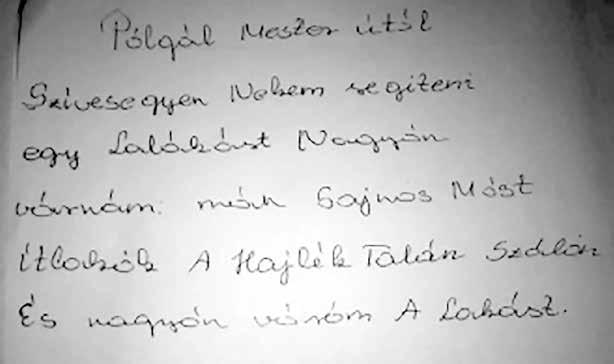 Pólgál Mester útól
Szívesegyen Nekem segiteni
egy Lalákást Nagyón
várnám. már Sajnos Móst
Ítlakók A Hajlék Talán Szálón
És nagyón váróm A Lakást.